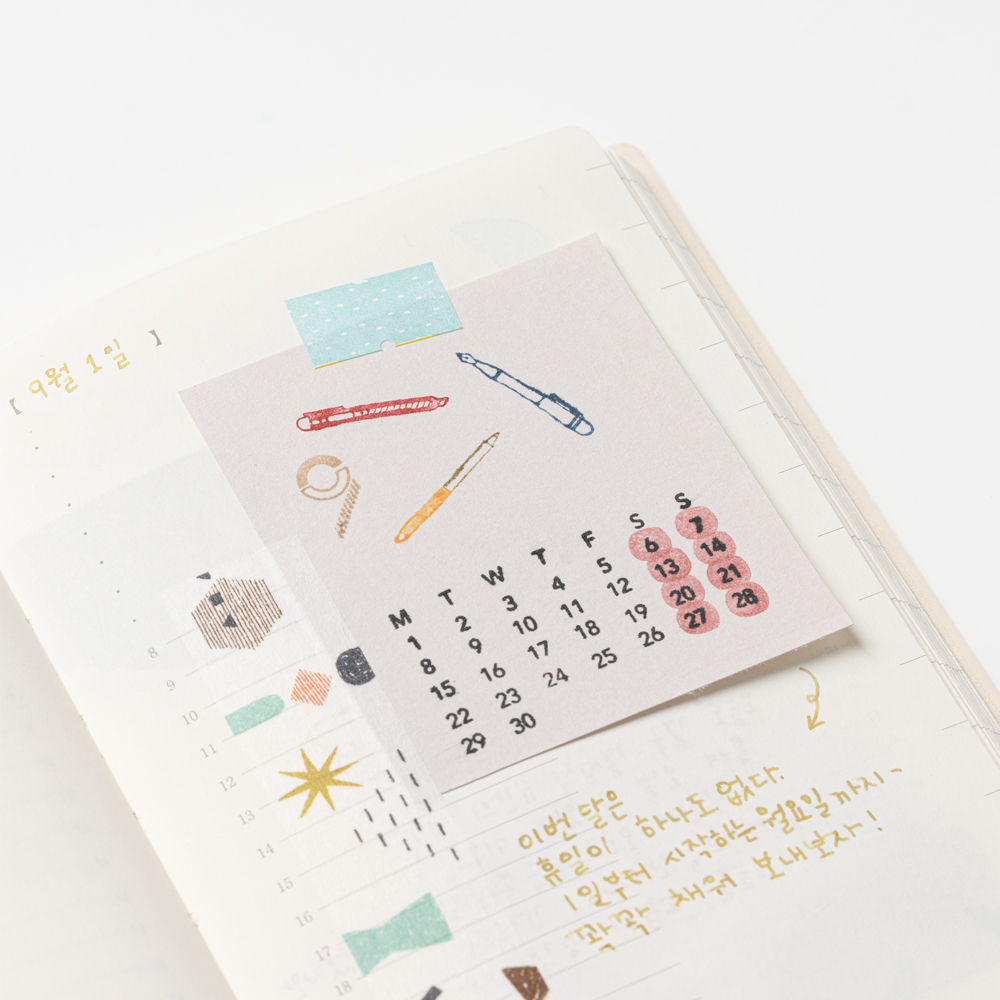 【 9월 1일 】
9
M T W T F S S
1 2 3 4 5 6 7
8 9 10 11 12 13 14
15 16 17 18 19 20 21
22 23 24 25 26 27 28
29 30
8
9
10
11
12
13
14
15
16
17
18
이번 달은
휴일이 하나도 없다.
1일부터 시작하는 월요일까지~
꽉꽉 채워 보내보자!